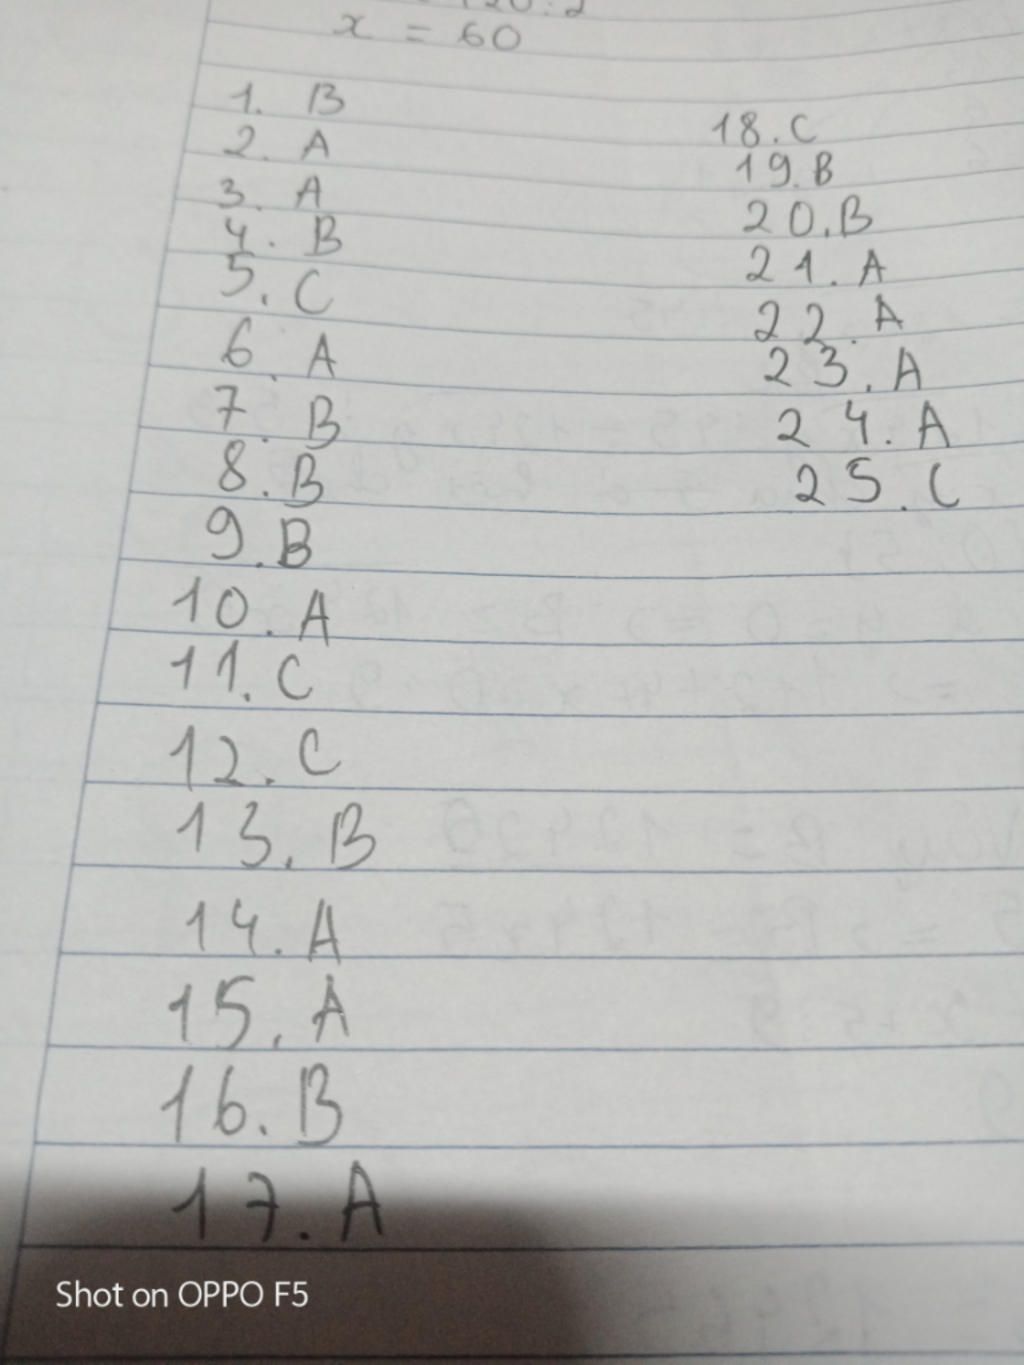 x = 60
1. B
2. A
3. A
4. B
5. C
6. A
7. B
8. B
9. B
10. A
11. C
12. C
13. B
14. A
15. A
16. B
17. A
18. C
19. B
20. B
21. A
22. A
23. A
24. A
25. C
Shot on OPPO F5